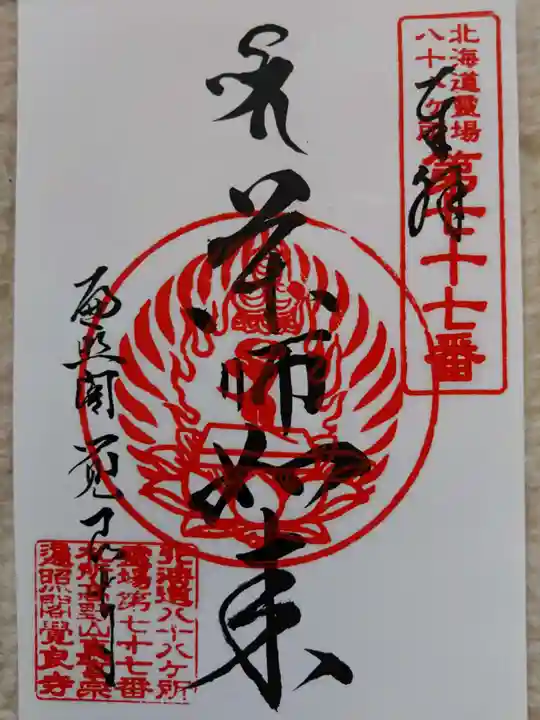 北海道霊場
八十八ケ所
第七十七番
奉拝
薬師如来
遍照閣覚良寺
北海道八十八ケ所
霊場第七十七番
高野山真言宗
遍照閣覺良寺